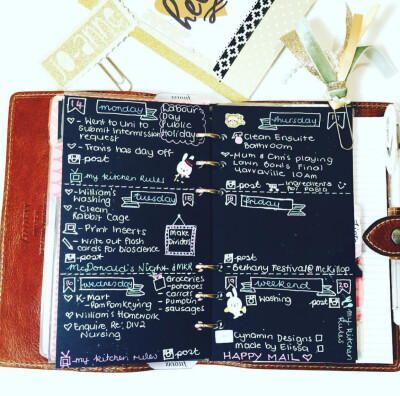 hey
14
monday
Labour's
Day
Public
Holiday
- Went to uni to
submit intermission
request
- Travis has day off
post
my kitchen Rules
- William's
Washing
tuesday
- Clean
Rabbit Cage
Print Inserts
- Write out flash
cards for bioscience
Make
Divider
post
McDonald's Night & MKR
wednesday
K-Mart
- Pom Pom Keyring
William's Homework
Enquire Re: DIV2
Nursing
Groceries
- potatoes
- carrots
- pumpkin
- sausages
my kitchen rules
post
thursday
Clean Ensuite
Bathroom
- Mum & Chris playing
Lawn Bowls Final
Yarraville 10AM
post
ingredients
for Pasta
friday
post
- Bethany Festival @ McKillop
weekend
20
Washing
post
my kitchen
rules
Cynamin Designs
made by Elissa
HAPPY MAIL